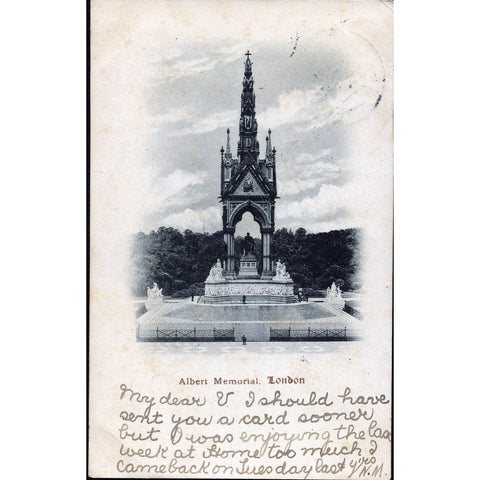 Albert Memorial, London
My dear V I should have
sent you a card sooner
but I was enjoying the las
week at Home too much I
came back on Tuesday last yrs
N.M.